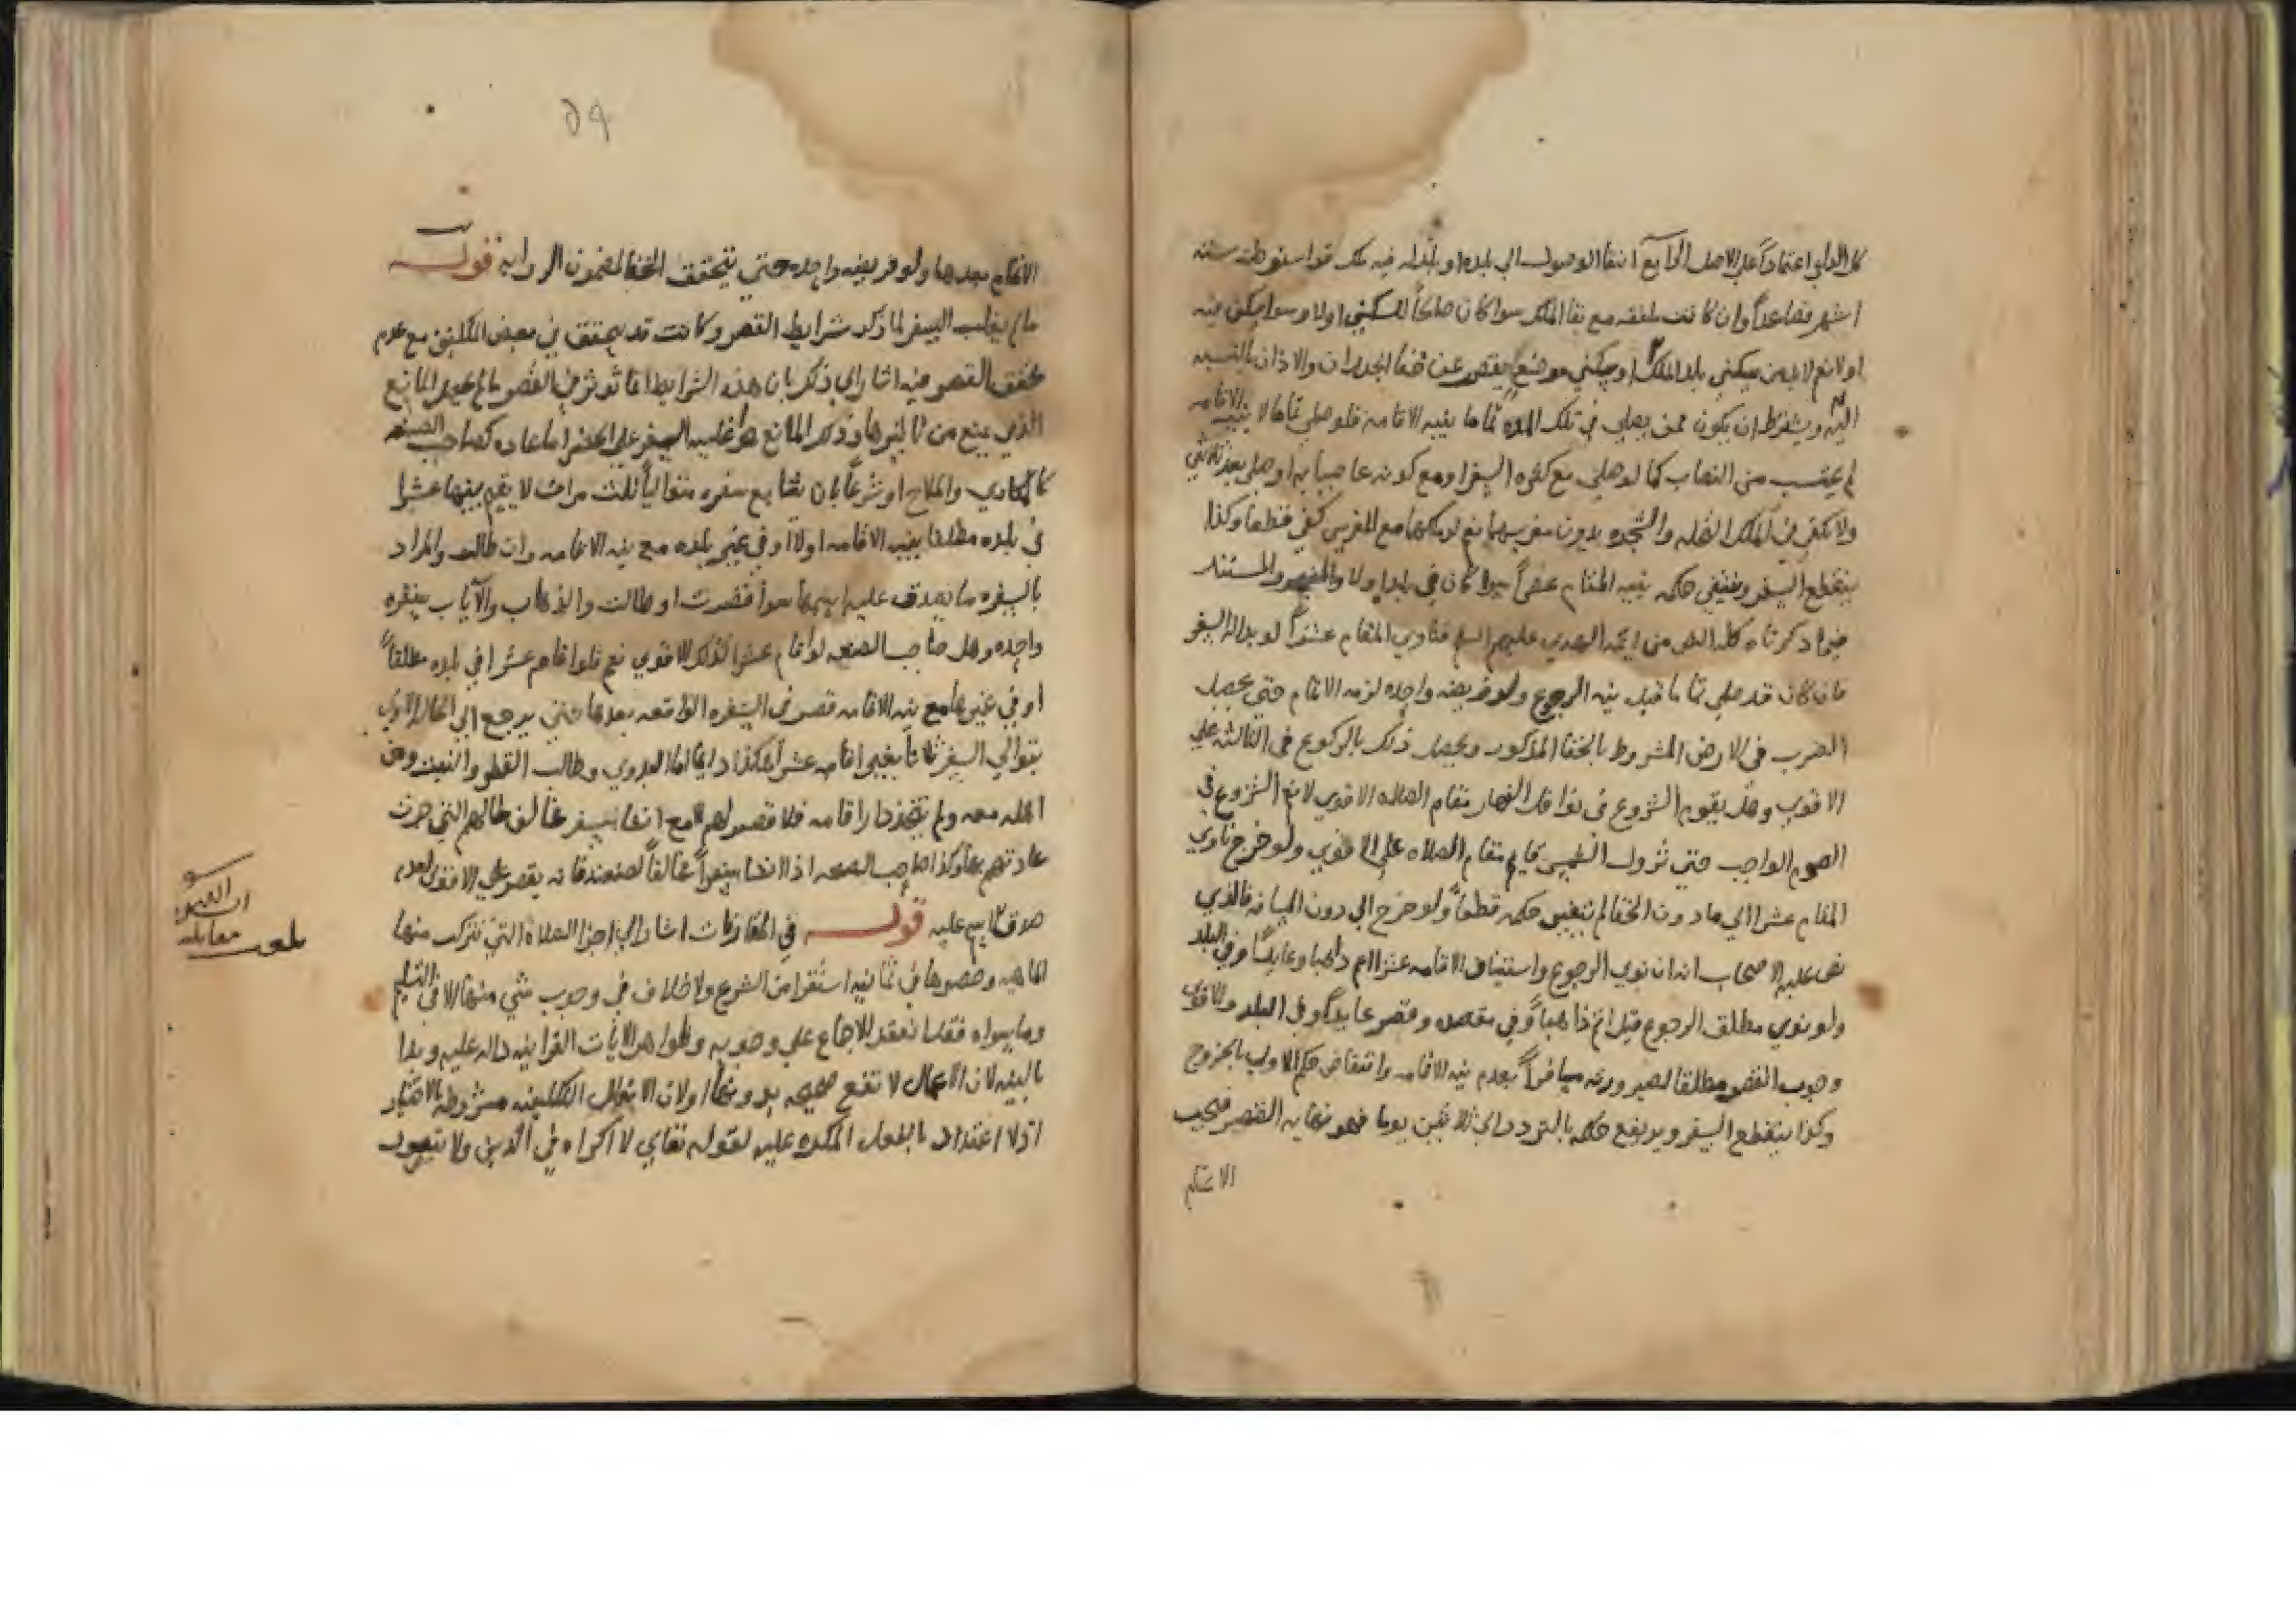 اعتماداً علي الاصل الرابع انتفا الوصول الي بلده او بلد له فيه ملك قد استوطنه ستة
اشهر فصاعداً وان كانت ملفقه مع بقا الملك سوا كان صالحاً للسكني اولا وسوا سكن فيه
او لا نعم لا بد من سكني بلد الملك او سكني موضع يقصر عن خفا الجدران والاذان بالنسبه
اليه ويشترط ان يكون ممن يصلي في تلك المده تماما بنيه الاقامه فلو صلي تماما لا بنيه الاقامه
لم يحتسب من النصاب كما لو صلي مع كثره السفر او مع كونه عاصيا به او صلي بعد ثلاثين
ولا يكفي في الملك النخله والشجره بدون مغرسهما نعم لو ملكهما مع المغرس كفي قطعا وكذا
ينقطع السفر وينتفي حكمه بنيه المقام عشراً سوا كان في بلد اولا والمستند
فيما ذكرناه كله النص من ايمه الهدي عليهم السلم فناوي المقام عشراً لو بدا له السفر
فان كان قد صلي تماما قبل نيه الرجوع ولو فريضه واحده لزمه الاتمام حتي يحصل
الضرب في الارض المشروط بالخفا المذكور ويحصل ذلك بالركوع في الثالثه علي
الاقوي وهل يقوم الشروع في نوافل النهار مقام الصلاه الاقوي لا نعم الشروع في
الصوم الواجب حتي تزول الشمس قايم مقام الصلاه علي الاقوي ولو خرج ناوي
المقام عشرا الي ما دون الخفا لم يتغير حكمه قطعاً ولو خرج الي دون المسافه فالذي
نص عليه الاصحاب انه ان نوي الرجوع واستيناف الاقامه عشرا اتم ذاهبا وعايداً وفي البلد
ولو نوي مطلق الرجوع قيل اتم ذاهباً وفي مقصده وقصر عايداً وفي البلد والاقوي
وجوب القصر مطلقا لصيرورته مسافراً بعدم نيه الاقامه وانتقاض حكم الاولي بالخروج
وكذا ينقطع السفر ويرتفع حكمه بالتردد الي ثلاثين يوما فهو نهايه التقصير فيجب
الاتمام
٥٩
الاتمام بعدها ولو فريضه واحده حتي يتحقق الخفا لمضمون الروايه قوله
ما لم يغلب السفر لما ذكر شرايط القصر وكانت قد تتحقق في بعض المكلفين مع عدم
تحقق القصر فيه اشار الي ذكر بان هذه الشرايط انما توثر في القصر ما لم يحصل المانع
الذي يمنع من تاثيرها وذكر المانع هو غلبه السفر علي الحضر اما عاده كصاحب الصنعه
كالمكاري والملاح او شرعاً بان يتتابع سفره متوالياً ثلث مرات لا يقيم بينها عشرا
في بلده مطلقا بنيه الاقامه اولا او في غير بلده مع نيه الاقامه وان طالت والمراد
بالسفره ما يصدق عليه اسمها سوا قصرت او طالت والذهاب والاياب سفره
واحده وهل صاحب الصنعه لو اقام عشرا كذلك الاقوي نعم فلو اقام عشرا في بلده مطلقاً
او في غيرها مع نيه الاقامه قصر في السفره الواقعه بعدها حتي يرجع الي الحال الاولي
بتوالي السفر ثلاثاً بغير اقامه عشر هكذا دايما اما البدوي وطالب القطر والنبت ومن
اهله معه ولم يتخذ دار اقامه فلا قصر لهم الا مع انشا سفر مخالف لحالهم التي جرت
عادتهم بها وكذا صاحب الصنعه اذا انشا سفراً مخالفاً لصنعته فانه يقصر علي الاقوي لعدم
صدق الاسم عليه قوله في المقارنات اشار الي اجزا الصلاة التي تتركب منها
الماهيه وحصرها في ثمانيه استقرا من الشرع ولا خلاف في وجوب شي منها الا في التسليم
وما سواه فقد انعقد الاجماع علي وجوبه وظواهر الايات القرانيه داله عليه وبدا
بالنيه لان الاعمال لا تقع صحيحه بدونها ولان الافعال التكليفيه مشروطه بالاختيار
اذ لا اعتداد بالفعل المكره عليه لقوله تعالي لا اكراه في الدين ولا يتصور
بلغ
مقابله